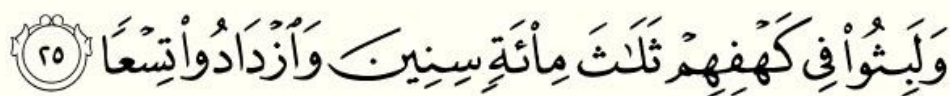 وَلَبِثُوا۟ فِى كَهْفِهِمْ ثَلَـٰثَ مِا۟ئَةٍ سِنِينَ وَٱزْدَادُوا۟ تِسْعًا ٢٥